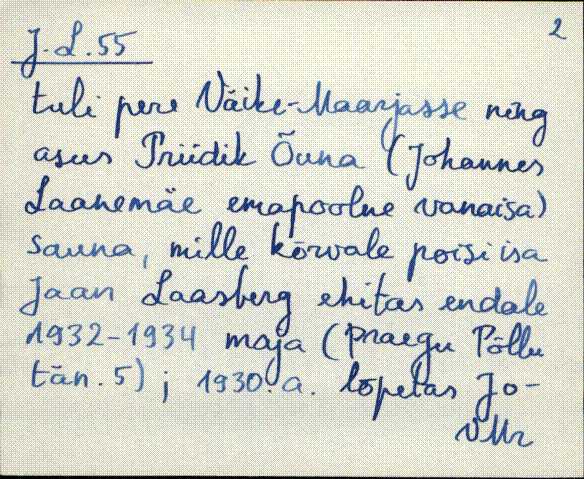 2
J. L. 55
tuli pere Väike-Maarjasse ning
asus Priidik Õuna (Johannes
Laanemäe emapoolne vanaisa)
sauna, mille kõrvale poisi isa
Jaan Laasberg ehitas endale
1932-1934 maja (praegu Põllu
tän. 5); 1930. a. lõpetas Jo-